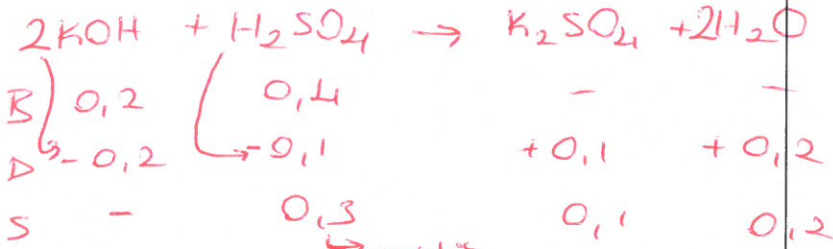 2KOH + H₂SO₄ → K₂SO₄ + 2H₂O
B 0,2 0,4 - -
D -0,2 -0,1 +0,1 +0,2
S - 0,3 0,1 0,2